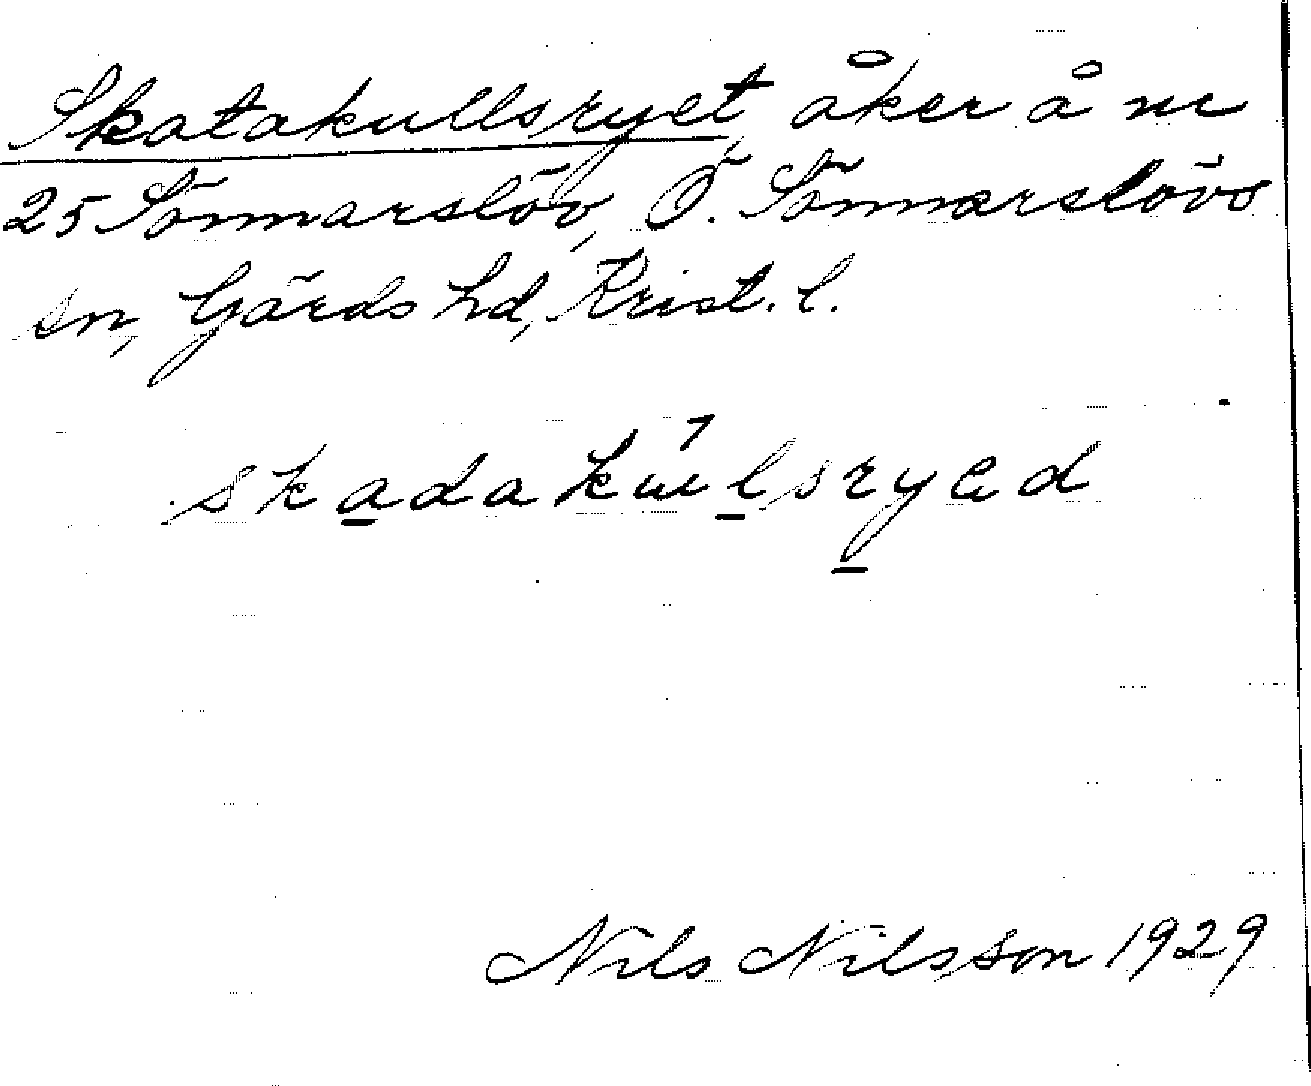 Skatakullsryet, åker å nr
25 Sönnarslöv, Ö. Sönnarslövs
sn, Gärds hd, Krist. l.
skadakúlsryed
Nils Nilsson 1929